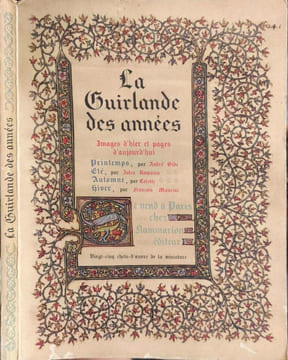 La Guirlande des années
La
Guirlande
des années
Images d'hier et pages
d'aujourd'hui
Printemps, par André Gide
Eté, par Jules Romains
Automne, par Colette
Hiver, par François Mauriac
Se vend à Paris
chez
Flammarion
éditeur
Vingt-cinq chefs-d'œuvre de la miniature